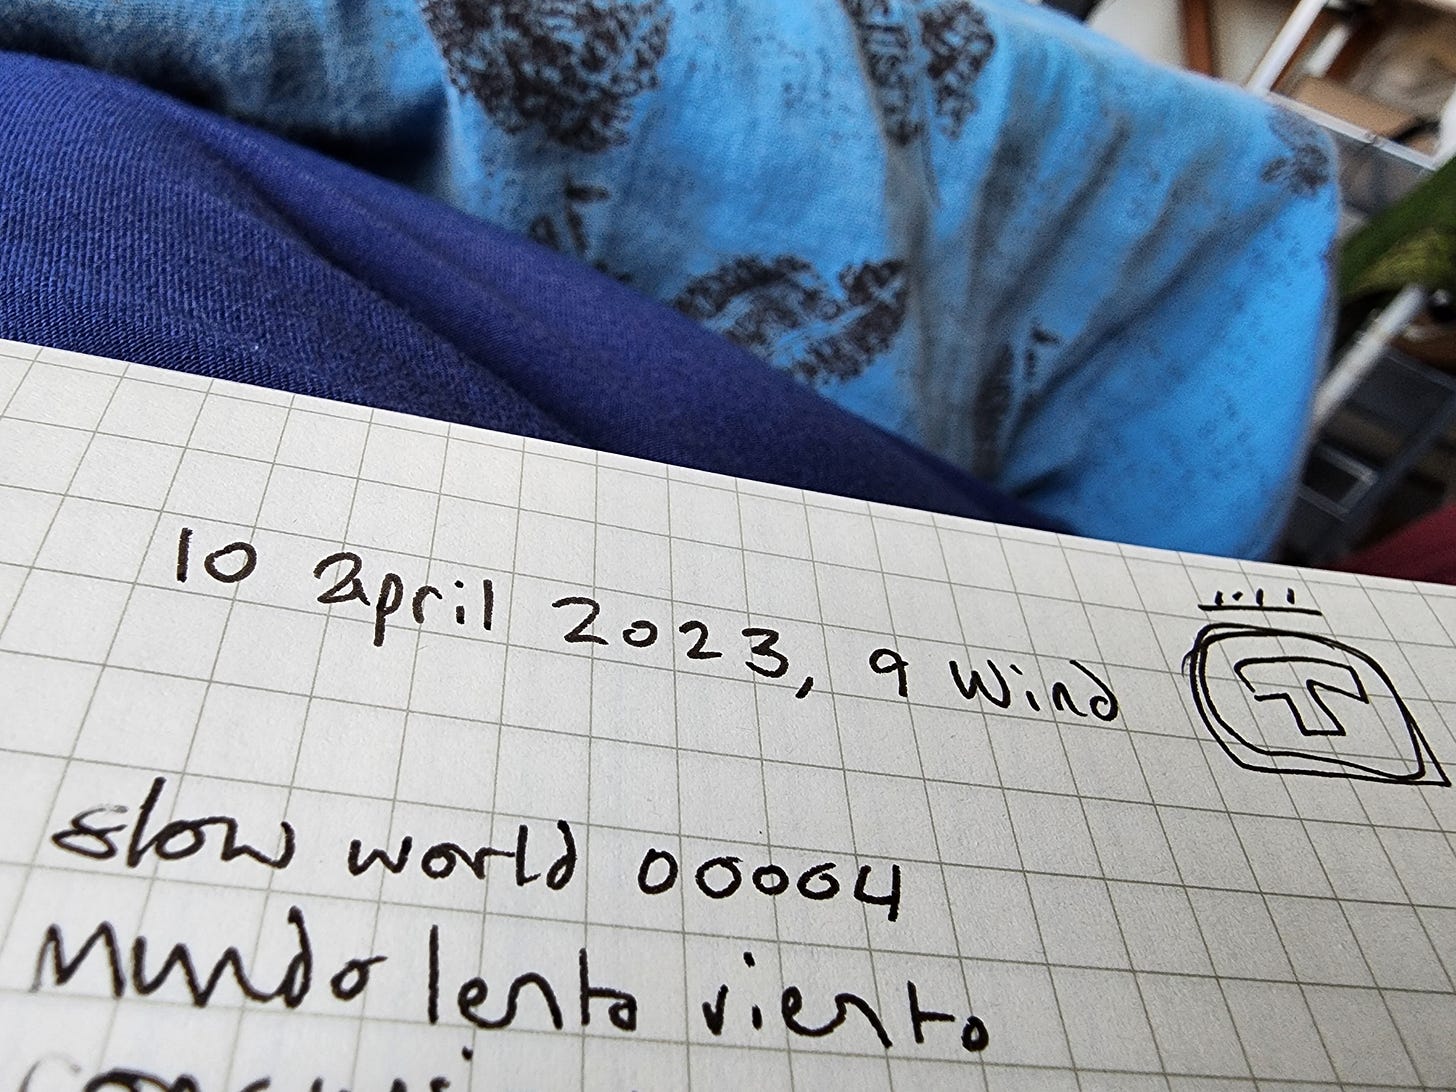 10 april 2023, 9 Wind
slow world 00004
Mundo lento viento